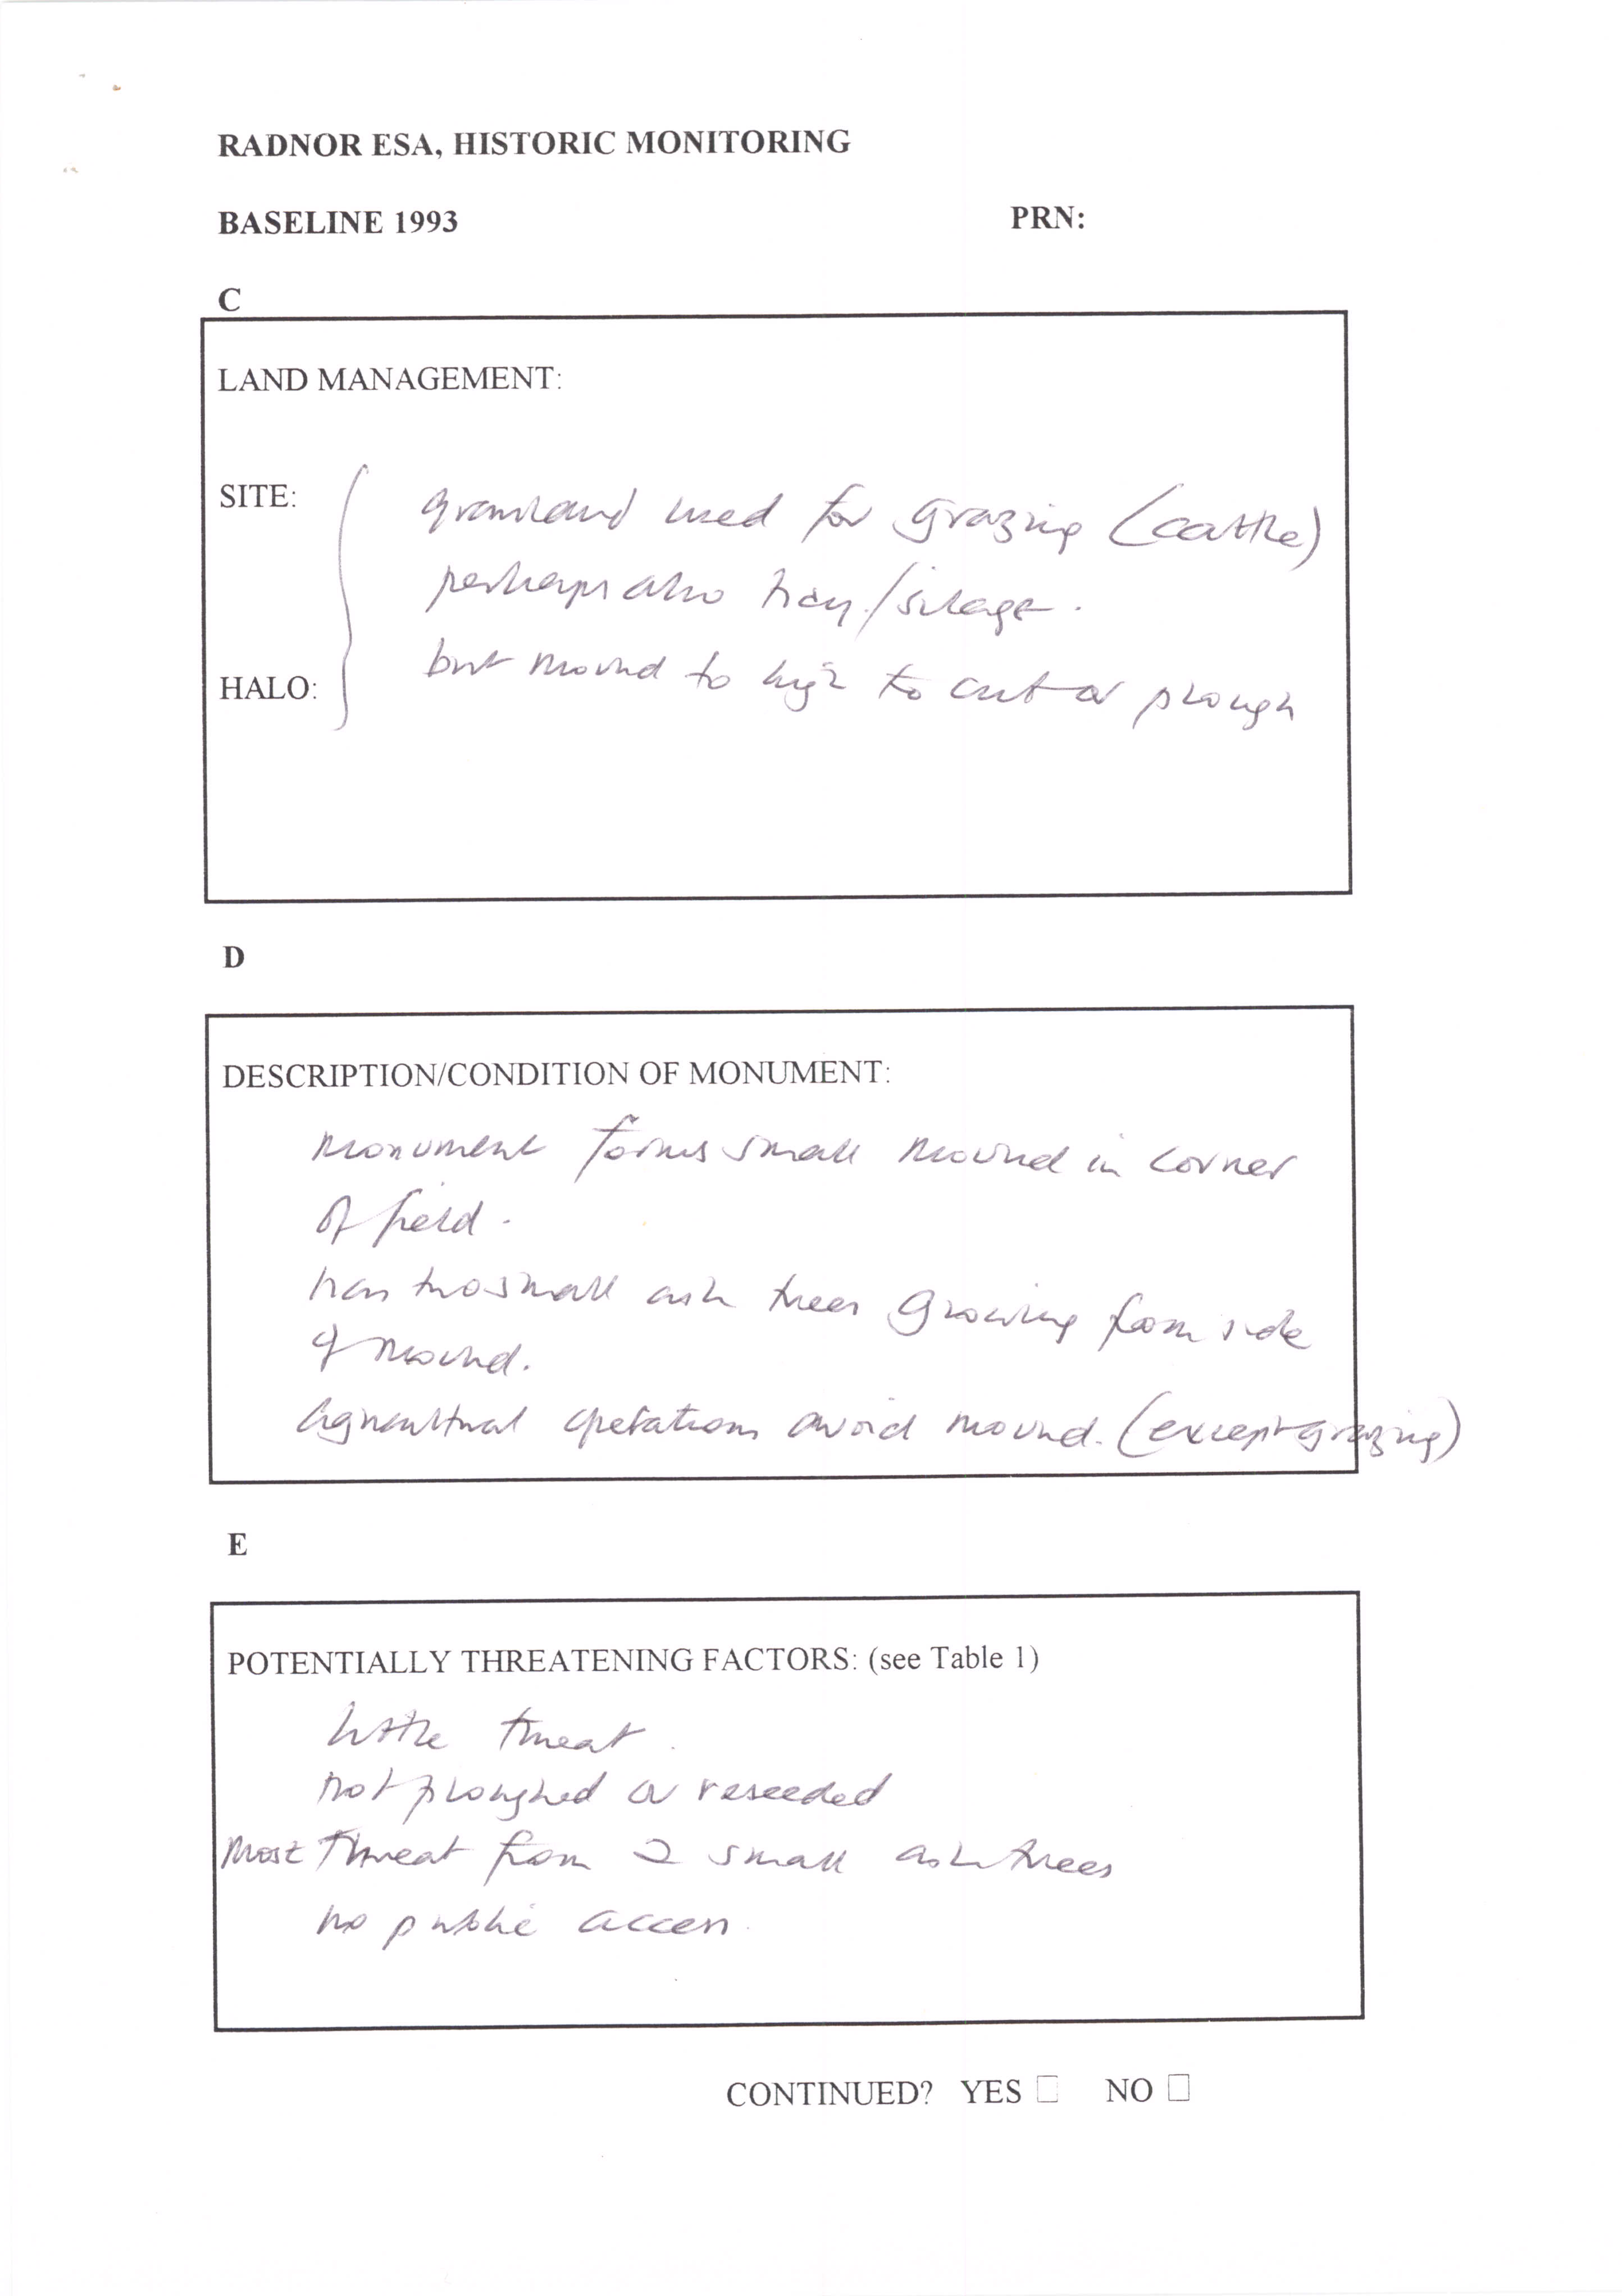 RADNOR ESA, HISTORIC MONITORING
BASELINE 1993 PRN:
C
LAND MANAGEMENT:
SITE: grassland used for grazing (cattle)
perhaps also hay/silage.
HALO: but mound to high to cut or plough
D
DESCRIPTION/CONDITION OF MONUMENT:
Monument forms small mound in corner
of field.
has two small ash trees growing from side
of mound.
Agricultural operations avoid mound. (except grazing)
E
POTENTIALLY THREATENING FACTORS: (see Table 1)
little threat.
not ploughed or reseeded
Most Threat from 2 small ash trees
no public access.
CONTINUED? YES ☐ NO ☐